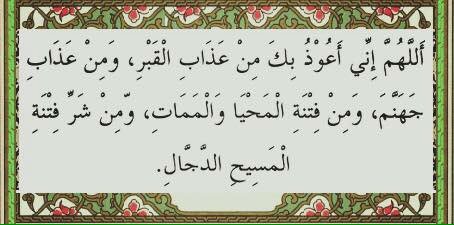 أَللَّهُمَّ إِنِّي أَعُوْذُ بِكَ مِنْ عَذَابِ الْقَبْرِ، وَمِنْ عَذَابِ
جَهَنَّمَ، وَمِنْ فِتْنَةِ الْمَحْيَا وَالْمَمَاتِ، وَّمِنْ شَرِّ فِتْنَةِ
الْمَسِيحِ الدَّجَّالِ.